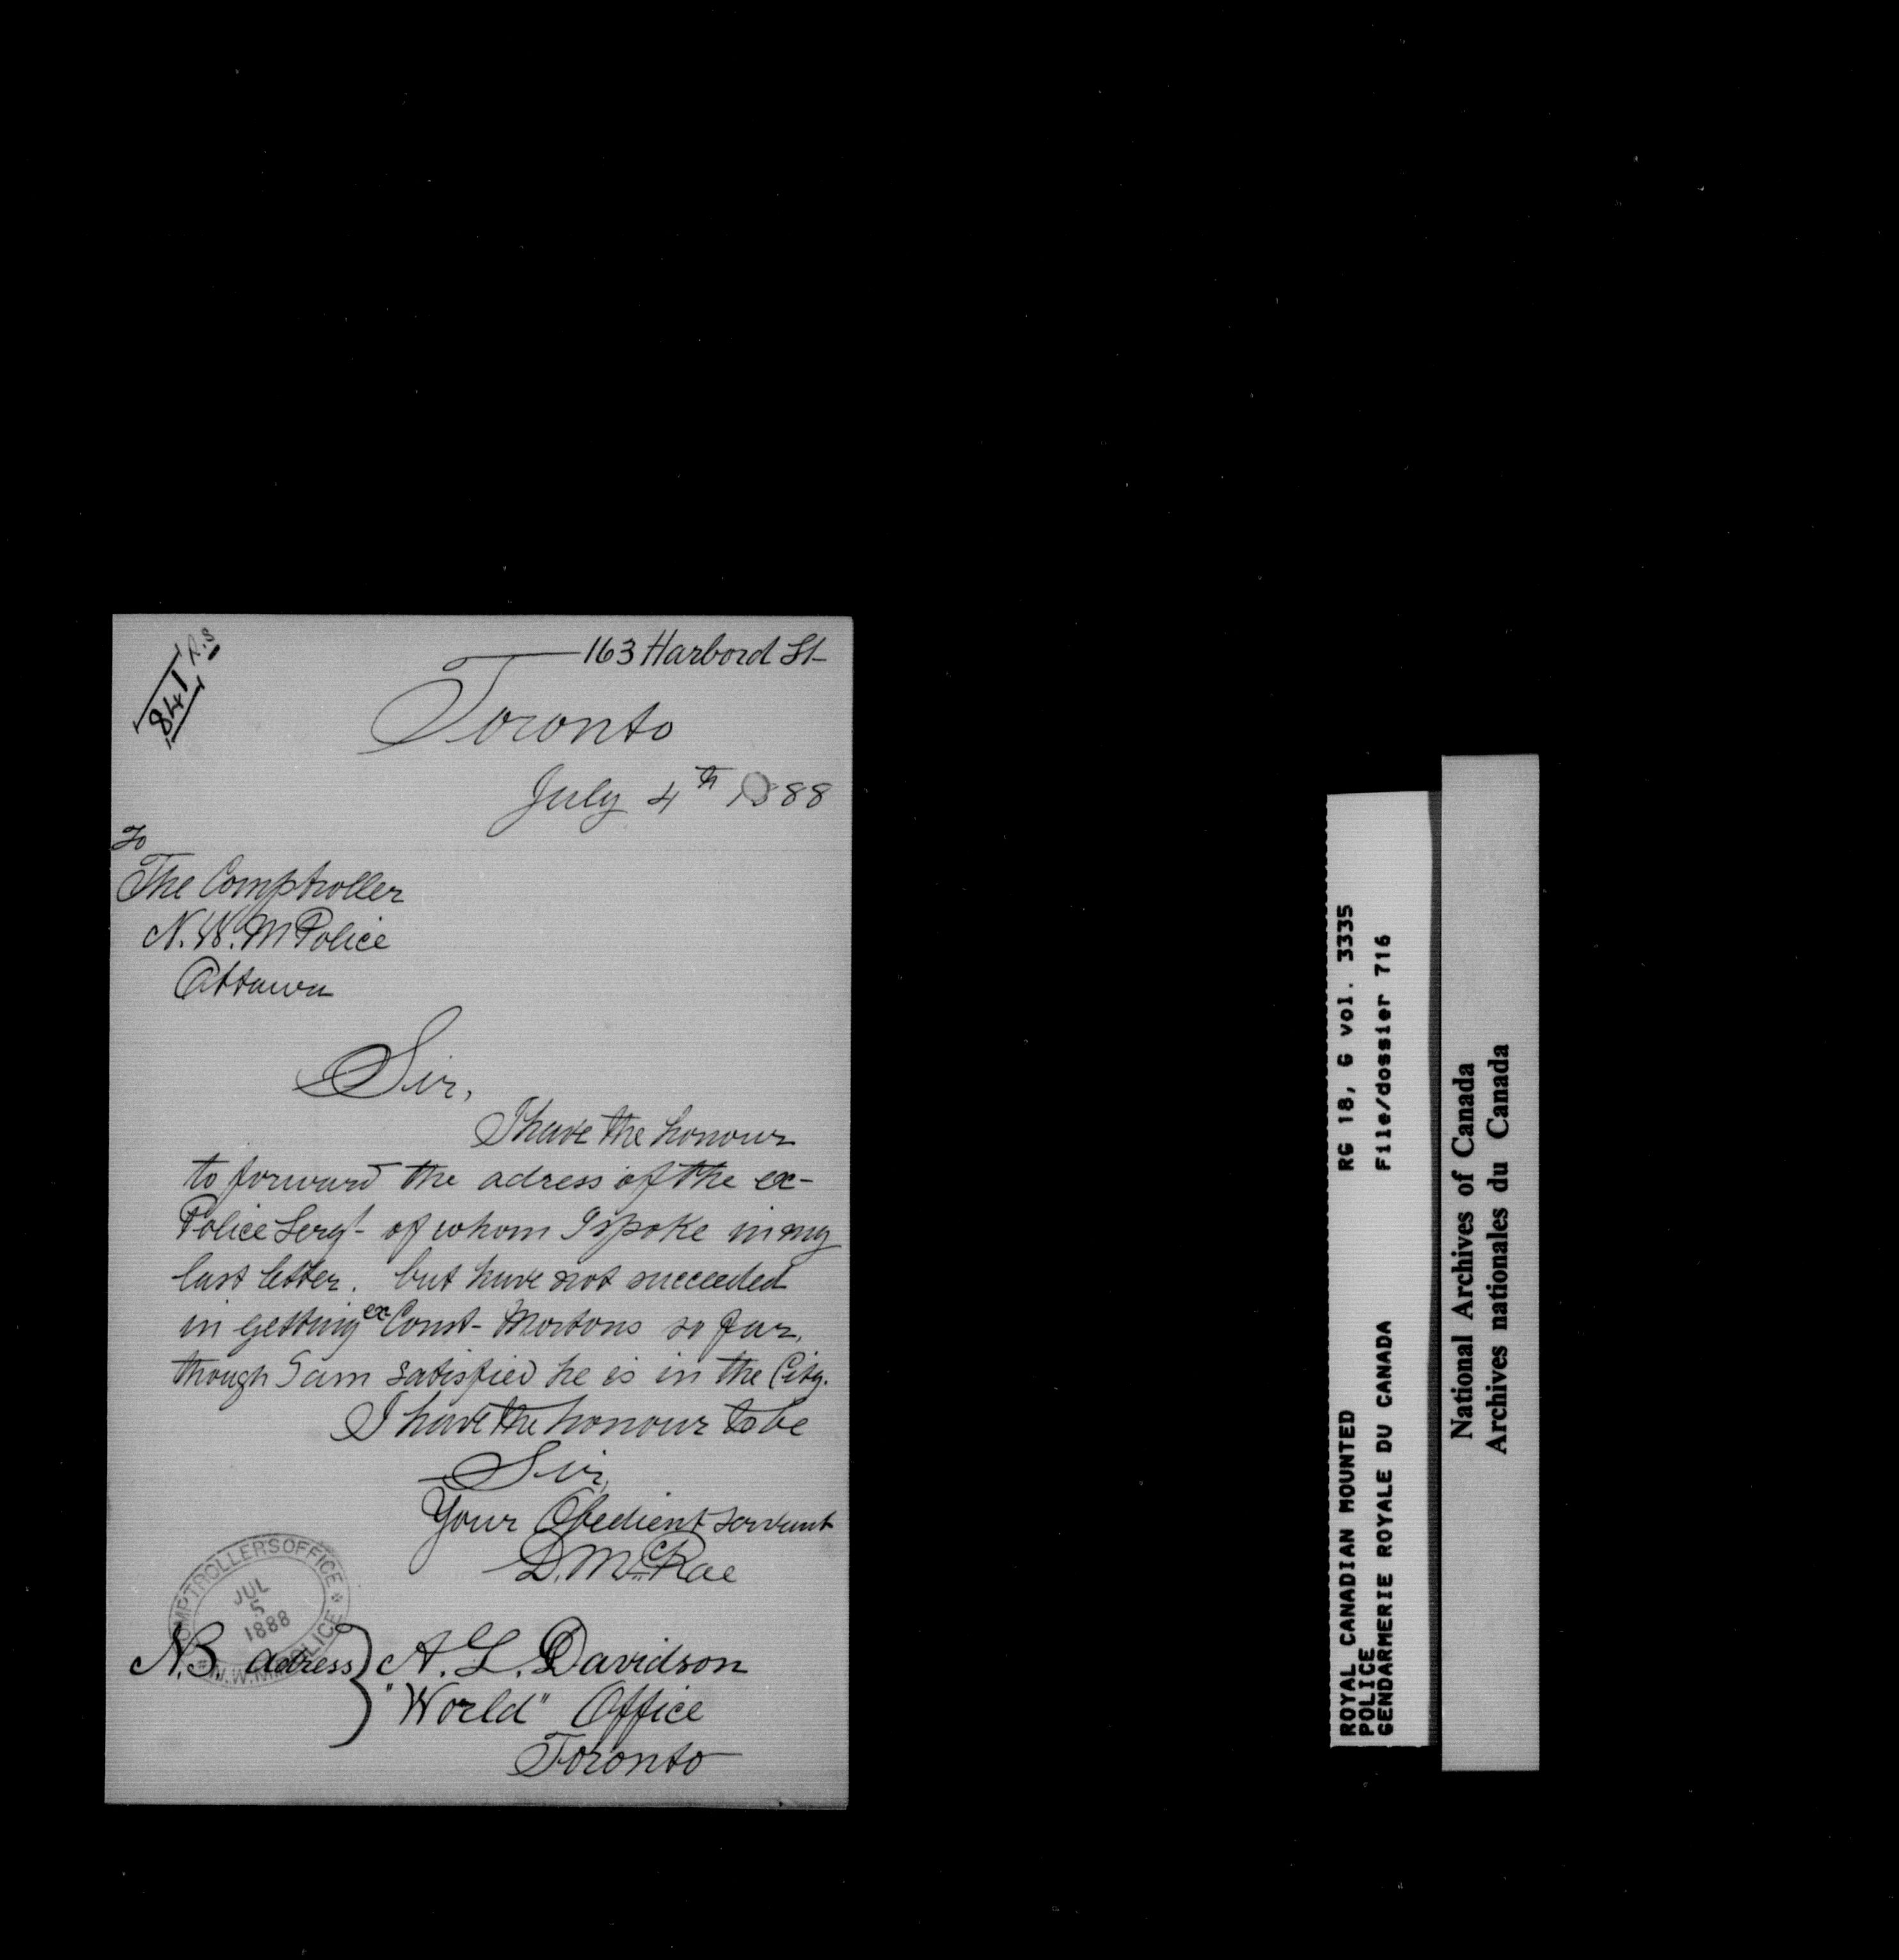 841 R.S
163 Harbord St
Toronto
July 4th 1888
To
The Comptroller
N. W. M Police
Ottawa
Sir,
I have the honour
to forward the adress of the ex-
Police Sergt- of whom I spoke in my
last letter. but have not succeeded
in getting ex Const- Mortons so far,
though I am satisfied he is in the City.
I have the honour to be
Sir,
Your Obedient servant
D. McRae
COMPTROLLERS OFFICE
JUL
5
1888
N.W.M. POLICE
N.B. adress } A. L. Davidson
"World" Office
Toronto
ROYAL CANADIAN MOUNTED RG 18, G vol. 3335
POLICE
GENDARMERIE ROYALE DU CANADA File/dossier 716
National Archives of Canada
Archives nationales du Canada